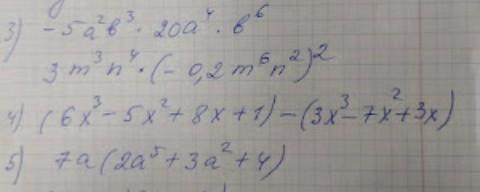 3) -5a²b³ · 20a⁴ · b⁶
3m³n⁴ · (-0,2m⁶n²)²
4) (6x³-5x²+8x+1)-(3x³-7x²+3x)
5) 7a(2a⁵+3a²+4)